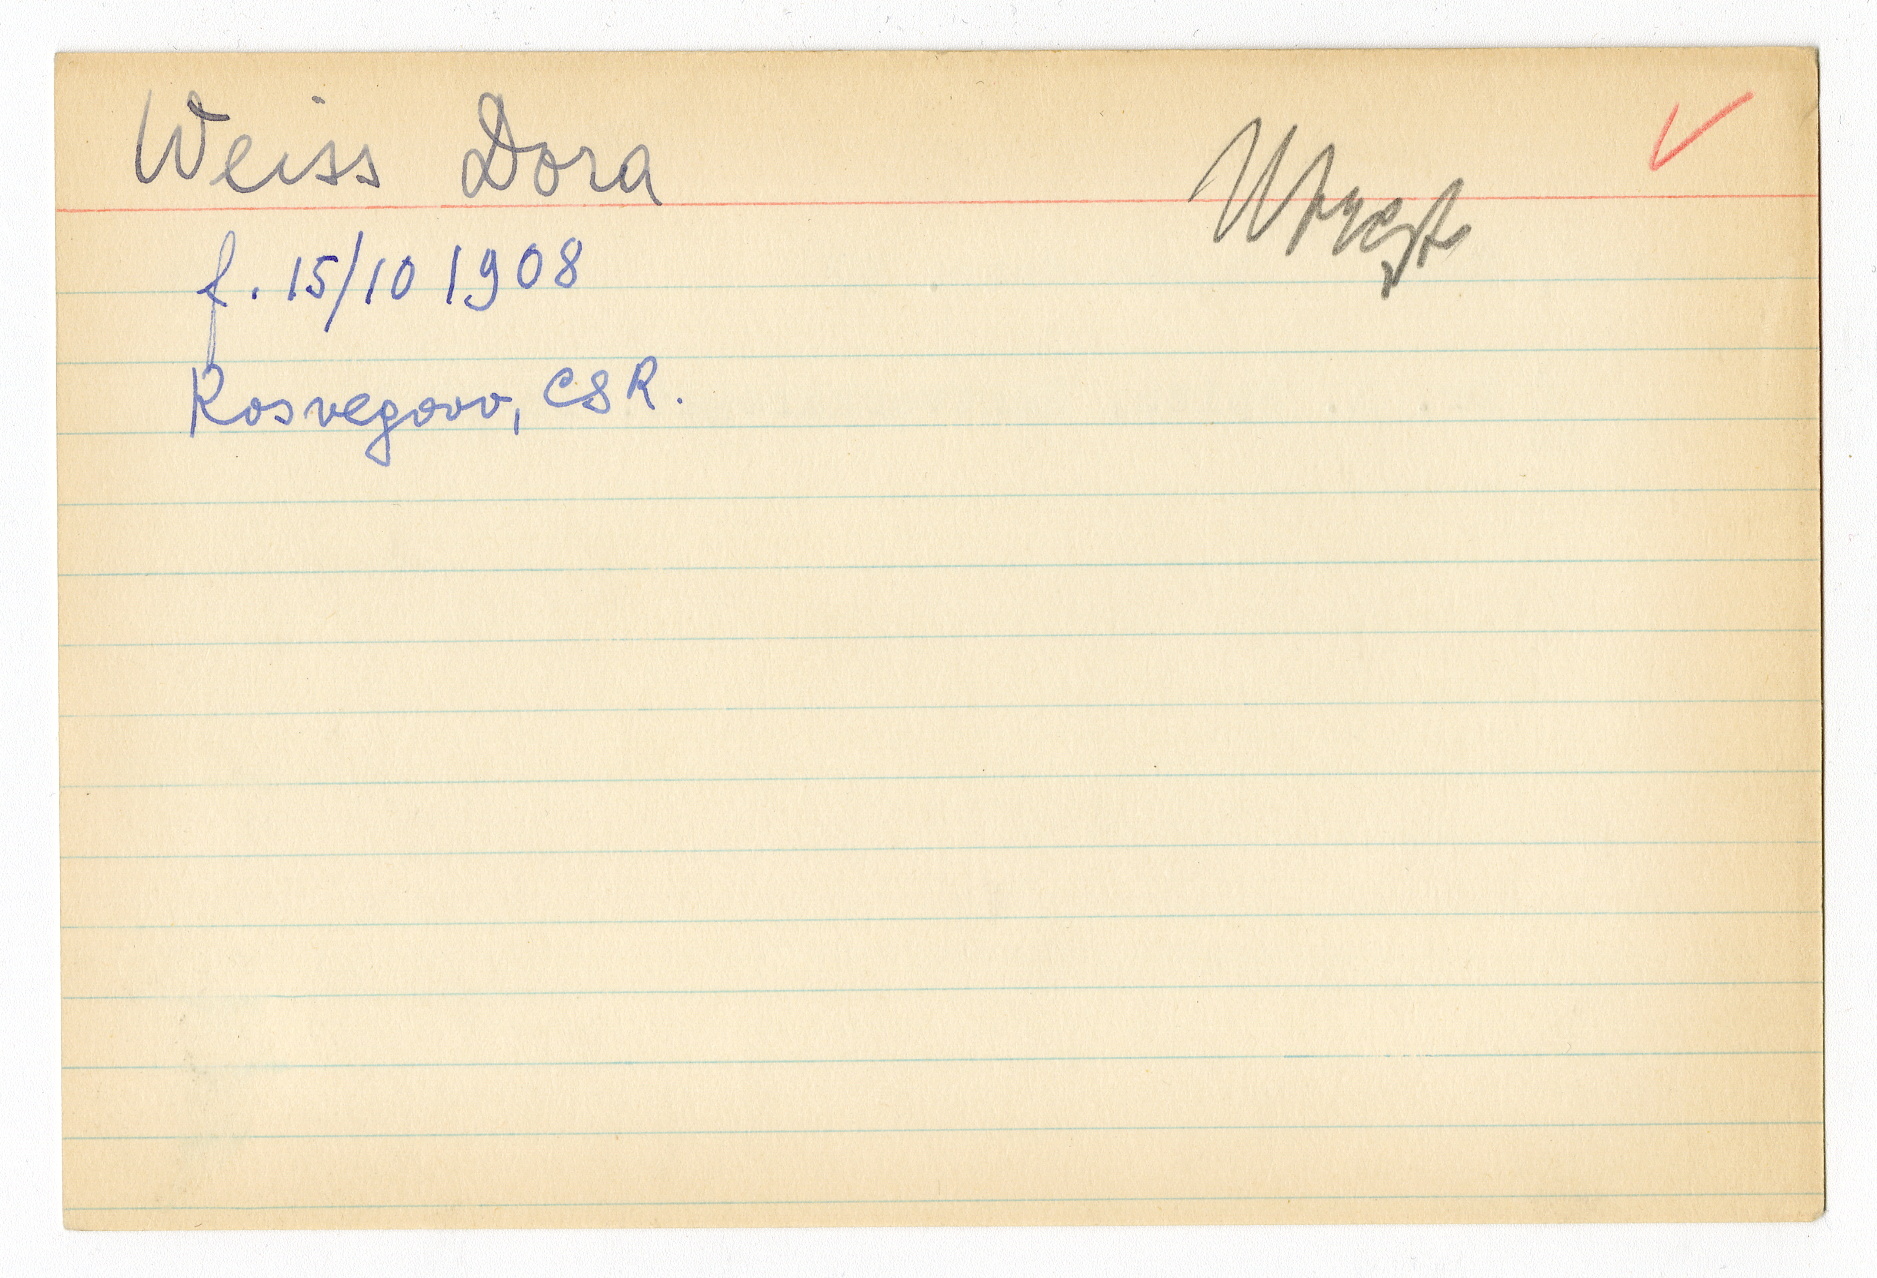 Weiss Dora
f. 15/10 1908
Rosvegovo, CSR.